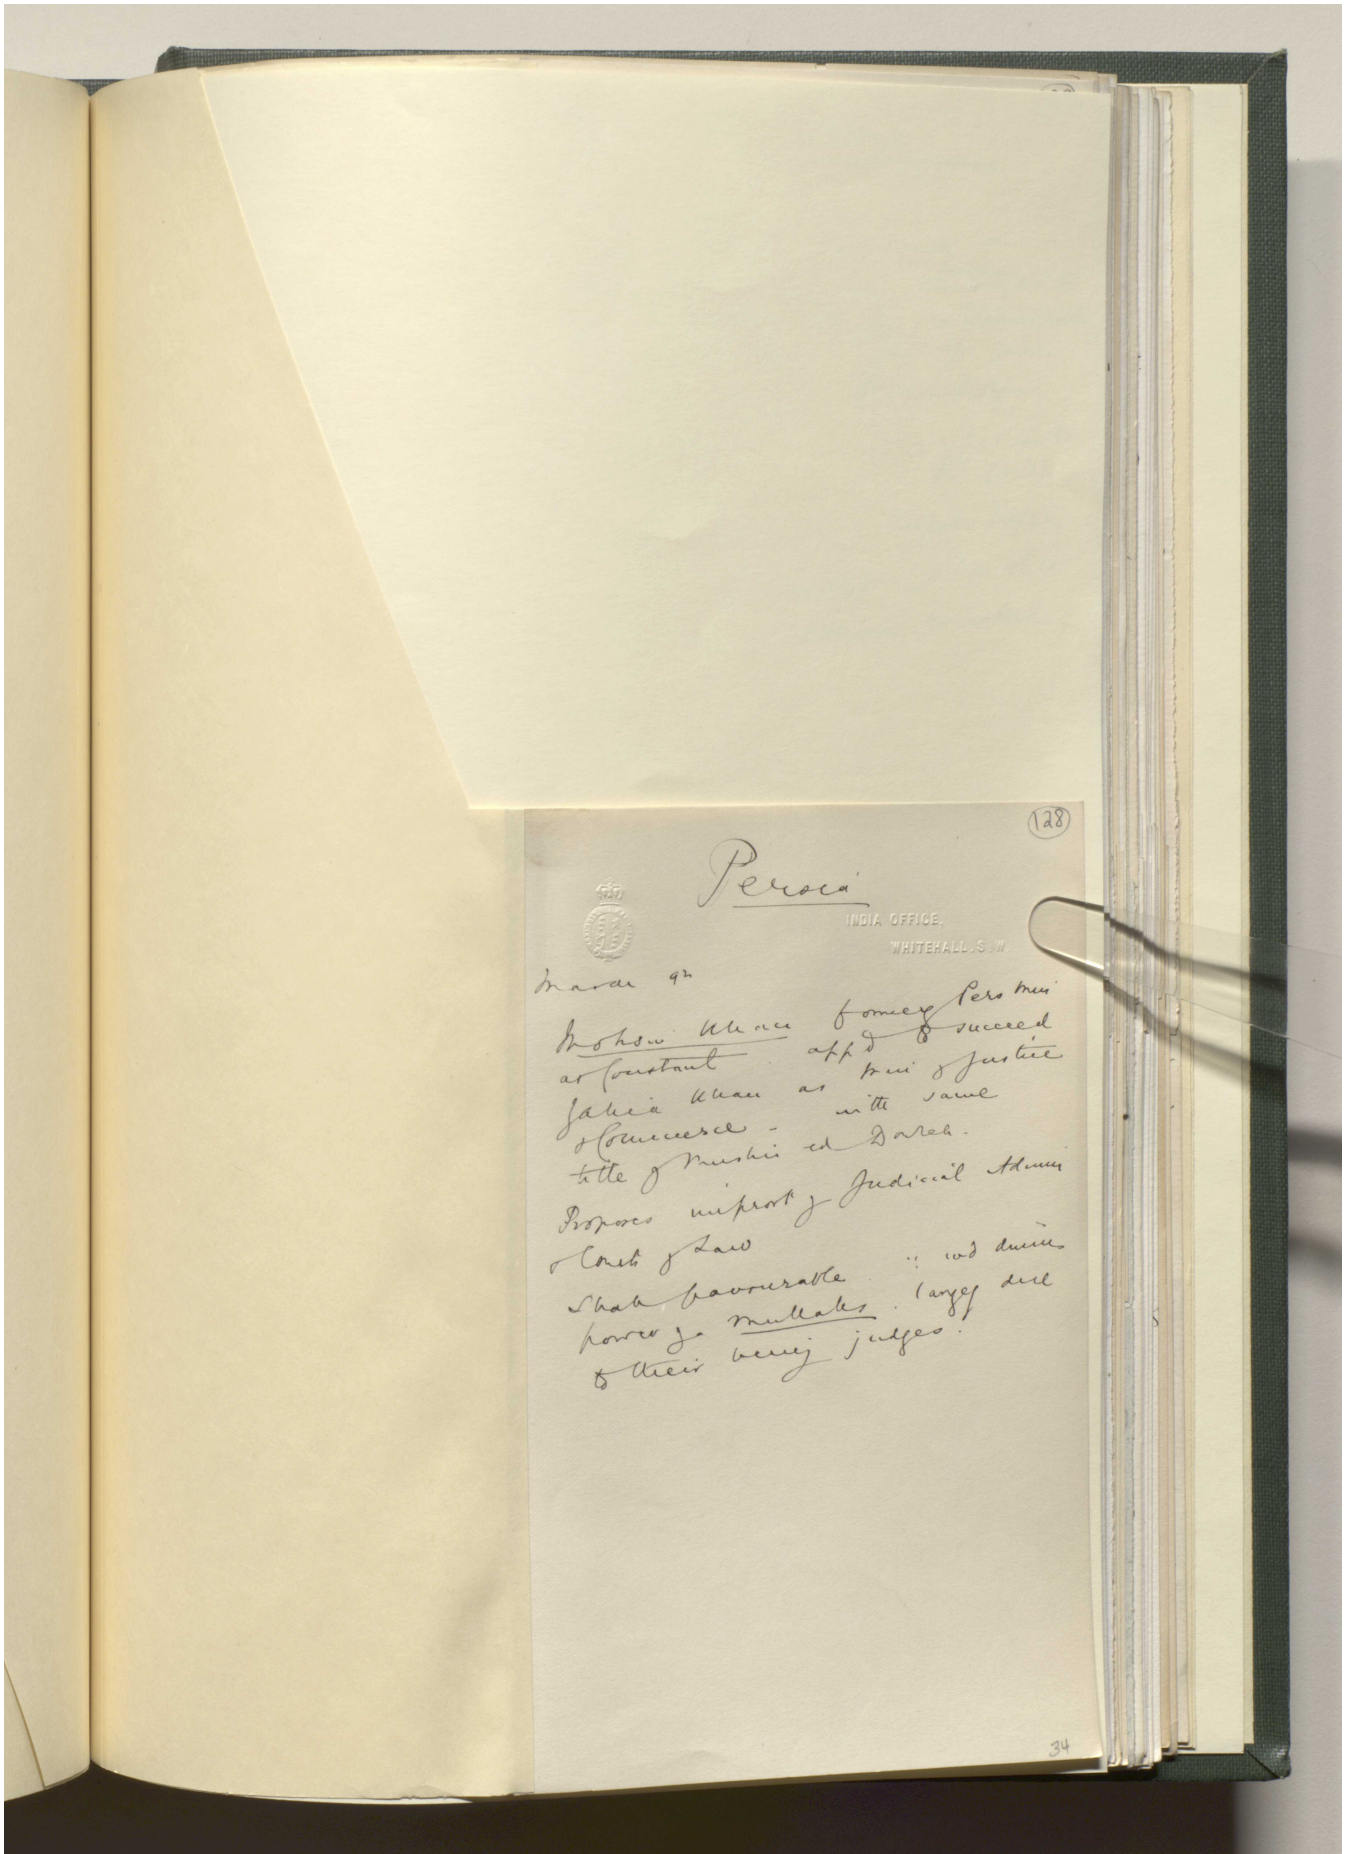 128
Persia
INDIA OFFICE,
WHITEHALL. S. W.
March 9th
Mohsin Khan formerly Pers Min
at Constant appd to succeed
Yahia Khan as Min of Justice
& Commerce - with same
title of Mushir ed Dowleh.
Proposes improvt of Judicial Admin
& Courts of Law
Shah favourable .: wd dimin
power of mullahs. largely due
to their being judges.
34